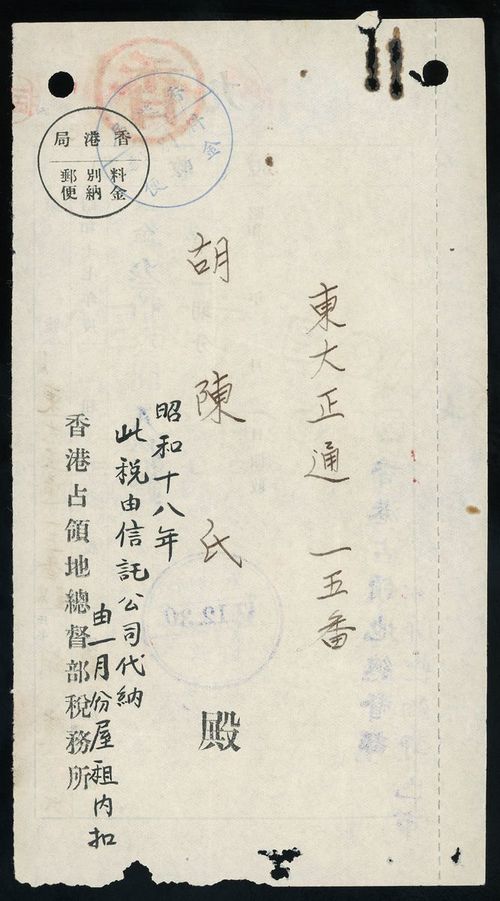 東大正通 一五番
胡陳氏 殿
昭和十八年
此税由信託公司代納
由一月份屋租内扣
香港占領地總督部税務所
局港香
郵便
別納
料金
12.30